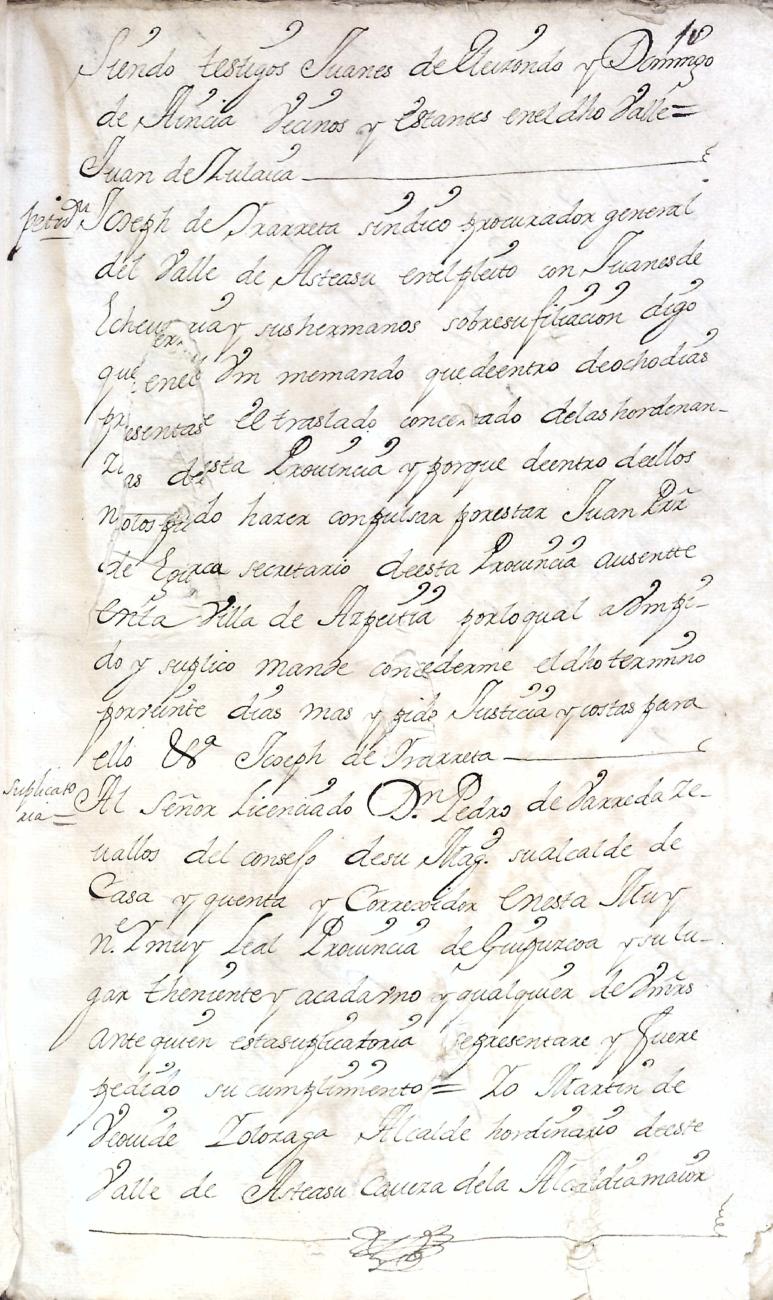 10
Siendo testigos Juanes de Elicondo y Domingo
de Aincia Vecinos y estantes enel dho Valle =
Juan de Zulaica
petizon
Joseph de Yrarreta sindico procurador general
del Valle de Asteasu enel pleito con Juanes de
Echeverria y sus hermanos sobresu filiacion digo
que enel Vm memando quedeentro deochodias
presentase el traslado concertado delas hordenan-
zas desta Provincia y porque deentro deellos
nolos pudo hazer conpulsar porestar Juan Prz
de Egurca secretario deesta Provincia ausentte
enla Villa de Azpeitia porloqual a Vm pi-
do y suplico mande concederme eldho termino
porveinte dias mas y pido Justicia y costas para
ello &a Joseph de Yrarreta
suplicato
ria =
Al Señor Licenciado Dn Pedro de Varreda ze-
vallos del consejo desu Mag. sualcalde de
Casa y quenta y Correxidor enesta Muy
Ne. Y muy Leal Provincia de Guipuzcoa y su lu-
gar theniente y acada vno y qualquier de Vmrs
ante quien estasuplicatoria sepresentare y fuere
pedido su cumplimiento = Yo Martin de
Veovide Zolozaga Alcalde hordinario deeste
Valle de Asteasu caveza dela Alcaldia maior